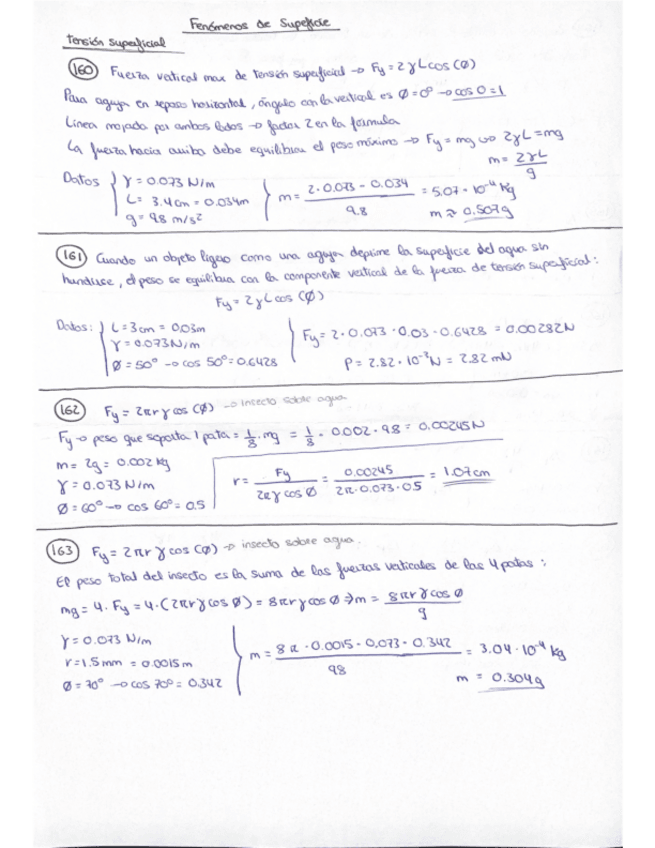 Fenómenos de Superficie
Tensión Superficial
160 Fuerza vertical max de tensión superficial → Fy = 2γL cos(ø)
Para aguja en reposo horizontal, ángulo con la vertical es ø = 0° → cos 0 = 1
Línea mojada por ambos lados → factor 2 en la fórmula
La fuerza hacia arriba debe equilibrar el peso máximo → Fy = mg ⇔ 2γL = mg
m = 2γL / g
Datos { γ = 0.073 N/m
L = 3.4 cm = 0.034 m
g = 9.8 m/s²
} m = 2 · 0.073 · 0.034 / 9.8 = 5.07 · 10⁻⁴ kg
m ≈ 0.507 g
161 Cuando un objeto ligero como una aguja deprime la superficie del agua sin
hundirse, el peso se equilibra con la componente vertical de la fuerza de tensión superficial:
Fy = 2γL cos(ø)
Datos: { L = 3 cm = 0.03 m
γ = 0.073 N/m
ø = 50° → cos 50° = 0.6428
} Fy = 2 · 0.073 · 0.03 · 0.6428 = 0.00282 N
P = 2.82 · 10⁻³ N = 2.82 mN
162 Fy = 2πrγ cos(ø) → insecto sobre agua
Fy → peso que soporta 1 pata = 1/8 · mg = 1/8 · 0.002 · 9.8 = 0.00245 N
m = 2g = 0.002 kg
γ = 0.073 N/m
ø = 60° → cos 60° = 0.5
r = Fy / 2πγ cos ø = 0.00245 / 2π · 0.073 · 0.5 = 1.07 cm
163 Fy = 2πr γ cos(ø) → insecto sobre agua.
El peso total del insecto es la suma de las fuerzas verticales de las 4 patas:
mg = 4 · Fy = 4 · (2πrγ cos ø) = 8πrγ cos ø ⇒ m = 8πrγ cos ø / g
γ = 0.073 N/m
r = 1.5 mm = 0.0015 m
ø = 70° → cos 70° = 0.342
} m = 8π · 0.0015 · 0.073 · 0.342 / 9.8 = 3.04 · 10⁻⁴ kg
m = 0.304 g